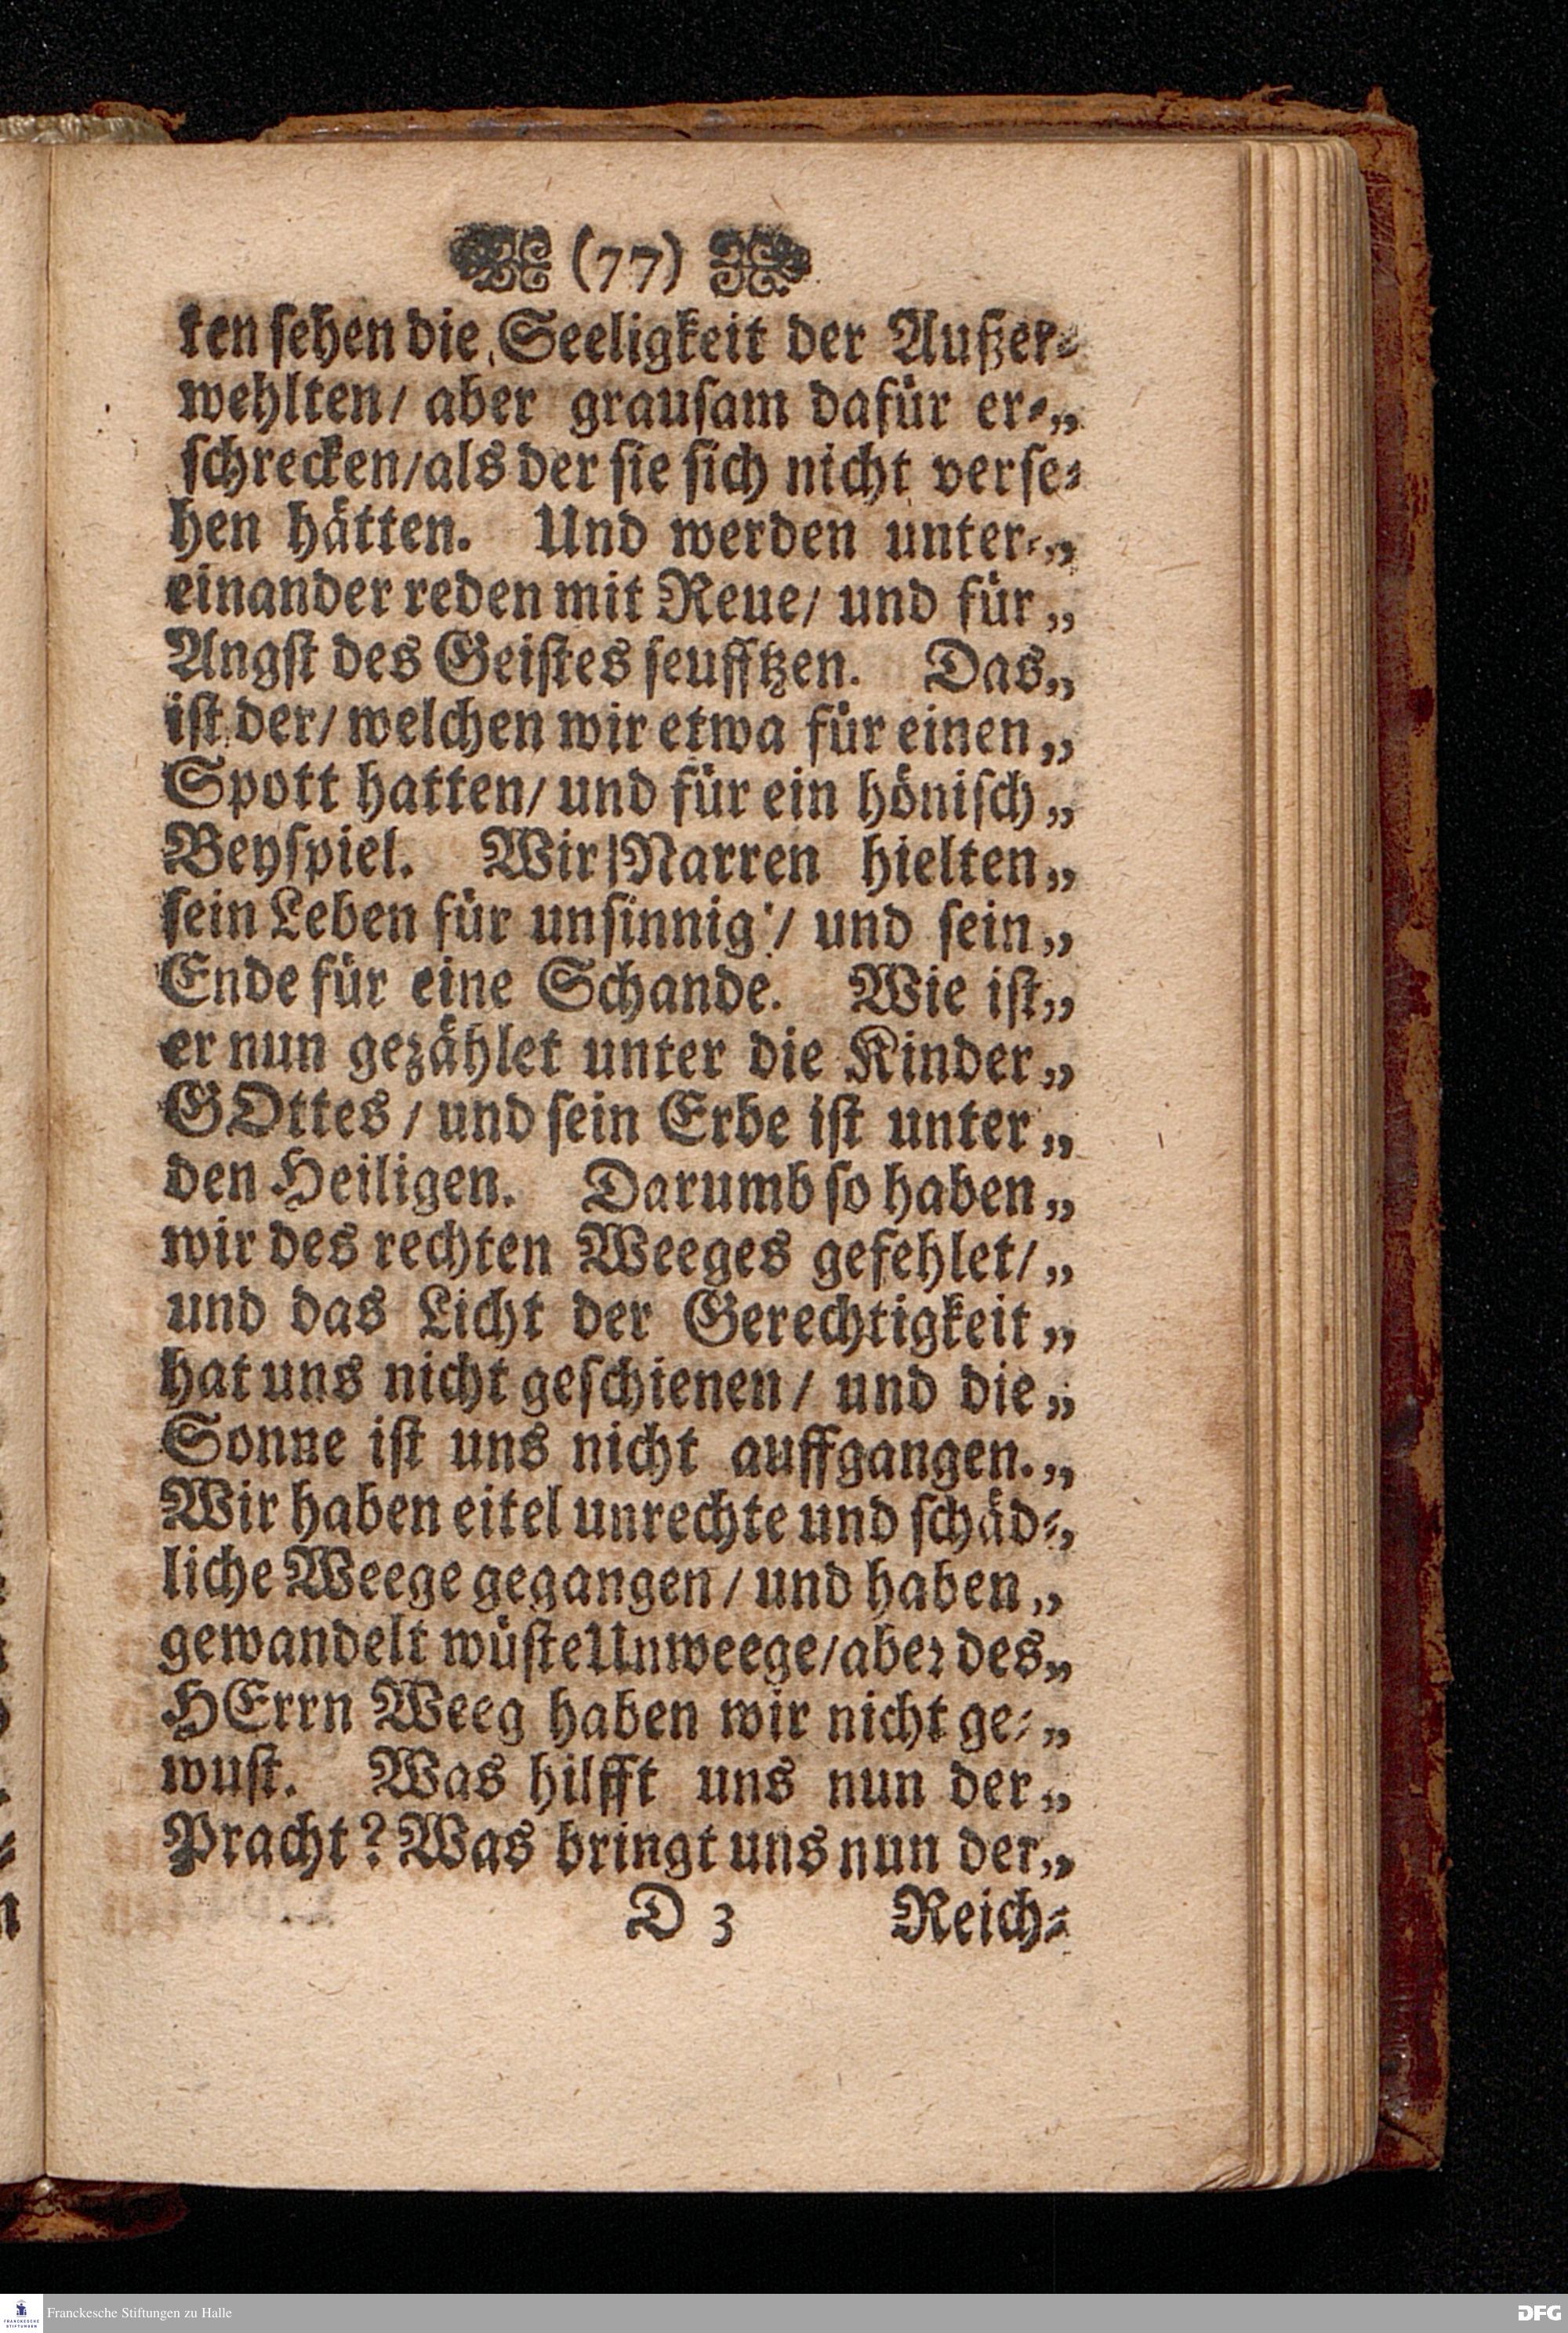 (77)
ten sehen die Seeligkeit der Außer⸗
wehlten/ aber grausam dafür er⸗„
schrecken/als der sie sich nicht verse⸗
hen hätten. Und werden unter⸗„
einander reden mit Reue/ und für„
Angst des Geistes seufftzen. Das„
ist der/ welchen wir etwa für einen„
Spott hatten/ und für ein hönisch„
Beyspiel. Wir Narren hielten„
sein Leben für unsinnig/ und sein„
Ende für eine Schande. Wie ist„
er nun gezählet unter die Kinder„
GOttes/ und sein Erbe ist unter„
den Heiligen. Darumb so haben„
wir des rechten Weeges gefehlet/„
und das Licht der Gerechtigkeit„
hat uns nicht geschienen/ und die„
Sonne ist uns nicht auffgangen.„
Wir haben eitel unrechte und schäd⸗,
liche Weege gegangen/ und haben„
gewandelt wüste Unweege/aber des„
HErrn Weeg haben wir nicht ge⸗„
wust. Was hilfft uns nun der„
Pracht? Was bringt uns nun der„
D 3 Reich⸗
Franckesche Stiftungen zu Halle
DFG